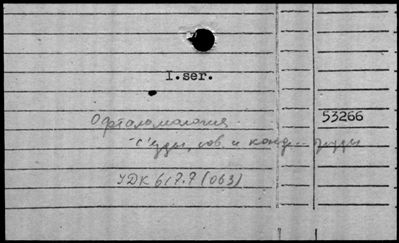 I.ser.
Офталмология 53266
съезды, сов. и конф.
УДК 617.7 (063)